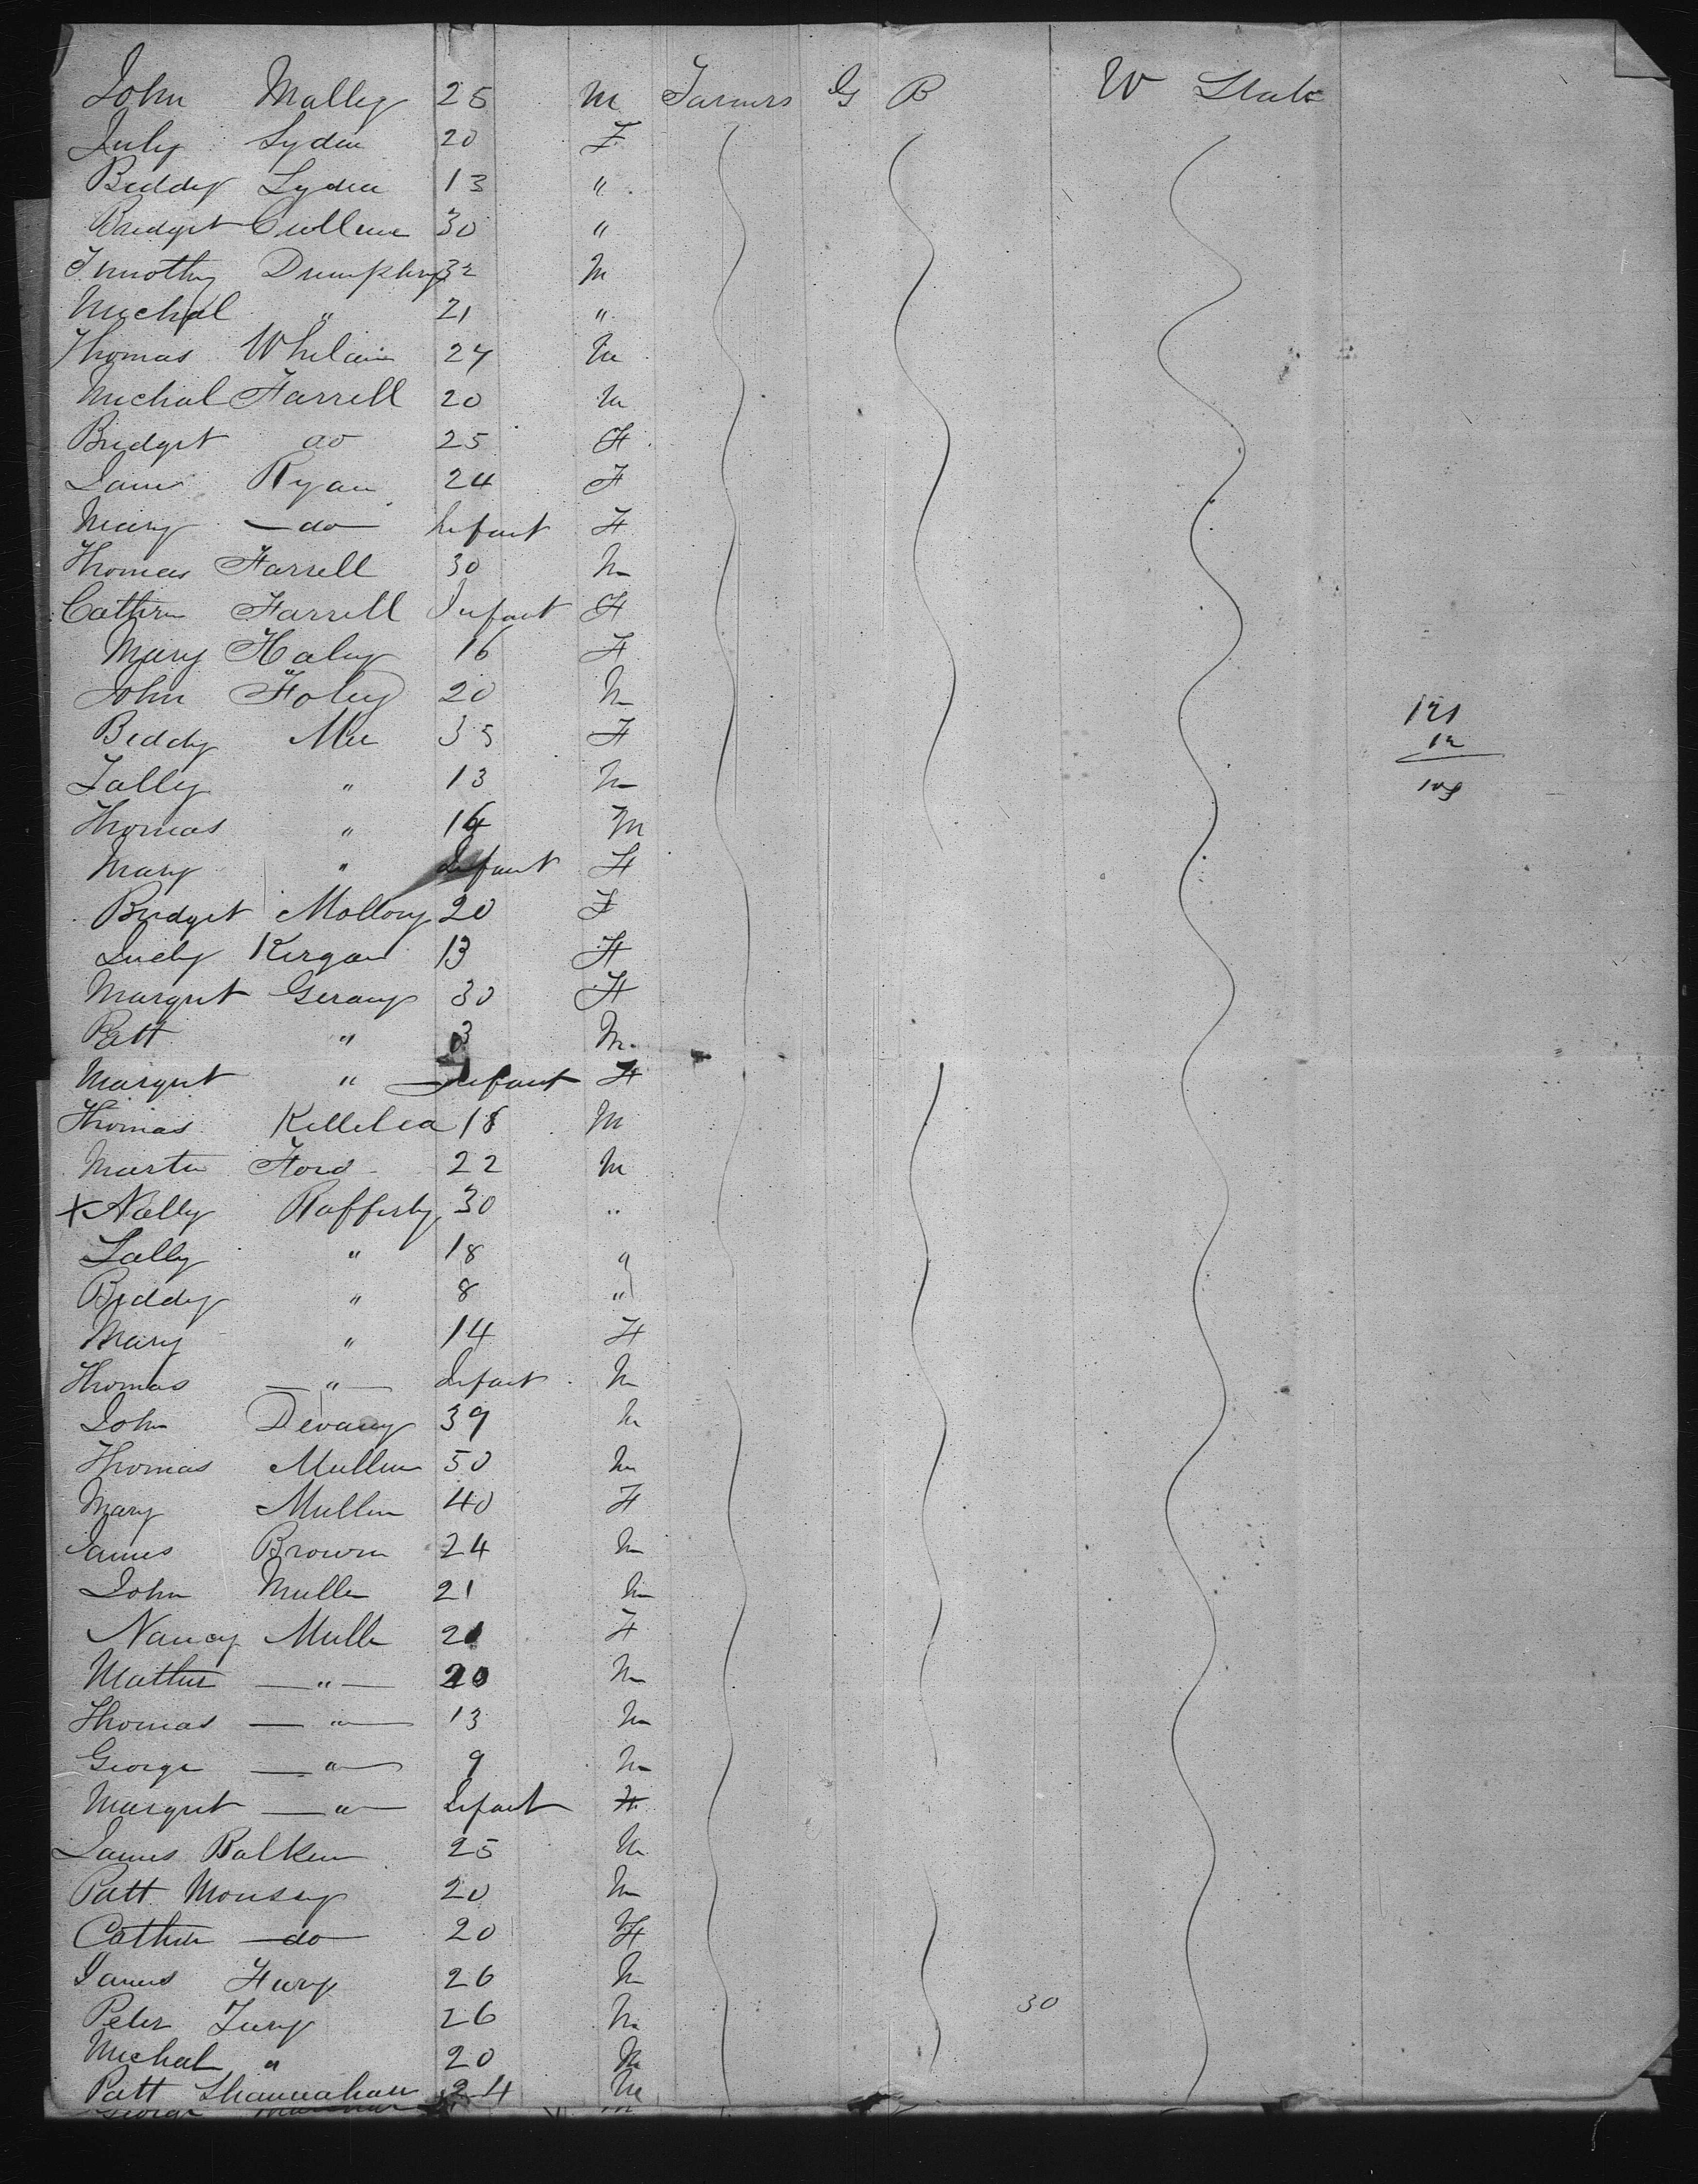 John Malley 25 M Farmers G B W State
July Lydia 20 F
Biddy Lydia 13 "
Bridget Cullene 30 "
Timothy Dumphry 32 M
Michal " 21 "
Thomas Whelain 27 M
Michal Farrell 20 M
Bridget do 25 F
Jane Ryan 24 F
Mary do Infant F
Thomas Farrell 30 M
Cathrn Farrell Infant F
Mary Haley 16 F
John Foley 20 M
Biddy Mee 35 F
121
12
109
Lally " 13 M
Thomas " 14 M
Mary " Infant F
Bridget Mollony 20 F
Kergan 13 F
Margret Geramy 30 F
Patt " 3 M
Margret " Infant F
Thomas Killilea 18 M
Martin Ford 22 M
x Nally Rafferty 30 "
Lally " 18 "
Biddy " 8 "
Mary " 14 F
Thomas " Infant M
John Devany 39 M
Thomas Mullen 50 M
Mary Mullin 40 F
James Brown 24 M
John Mulle 21 M
Nancy Mulle 21 F
Mathew " 20 M
Thomas " 13 M
George " 9 M
Margret " Infant F
James Balken 25 M
Patt Monsey 20 M
Cathrn do 20 F
James Fury 26 M
Peter Fury 26 M 30
Michal " 20 M
Patt Shannahan 24 M
George